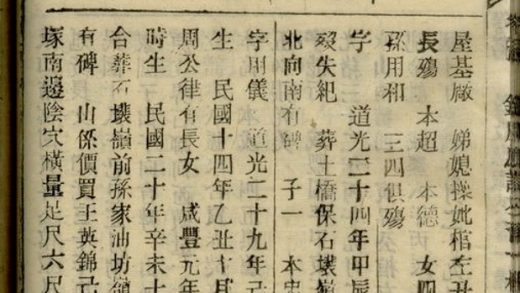 屋基廠　娣媳操妣棺左丑
長殤　本超　本德　女四
孫用和　三四俱殤
字　道光二十四年甲辰
歿失紀　葬土橋保石壞嶺
北向南有碑　子一　本忠
字用儀　道光二十九年己
生　民國十四年乙丑十月
周公律有長女　咸豐元年
時生　民國二十年辛未十
合葬石壞嶺前孫家油坊嶺
有碑　山係價買王英錦己
塚南邊陰穴橫量足尺六尺